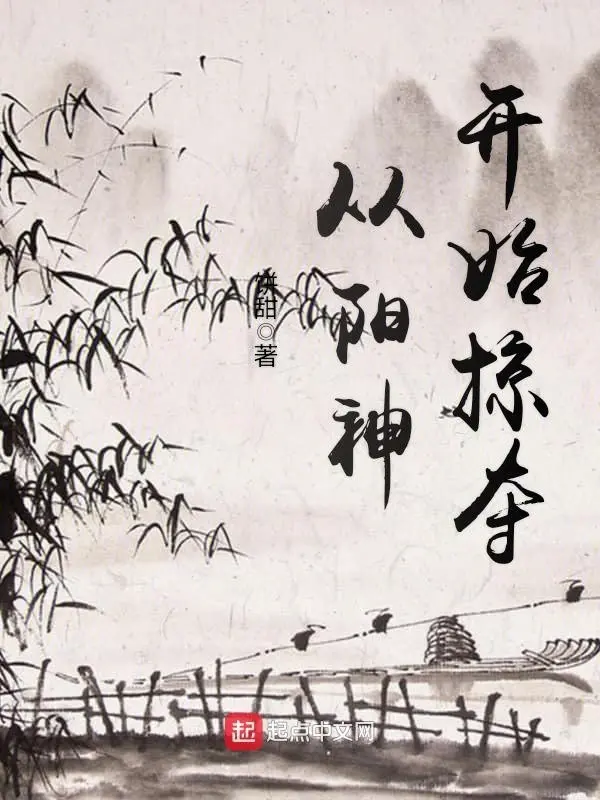 从阳神
开始掠夺
饼甜◎著
起 起点中文网